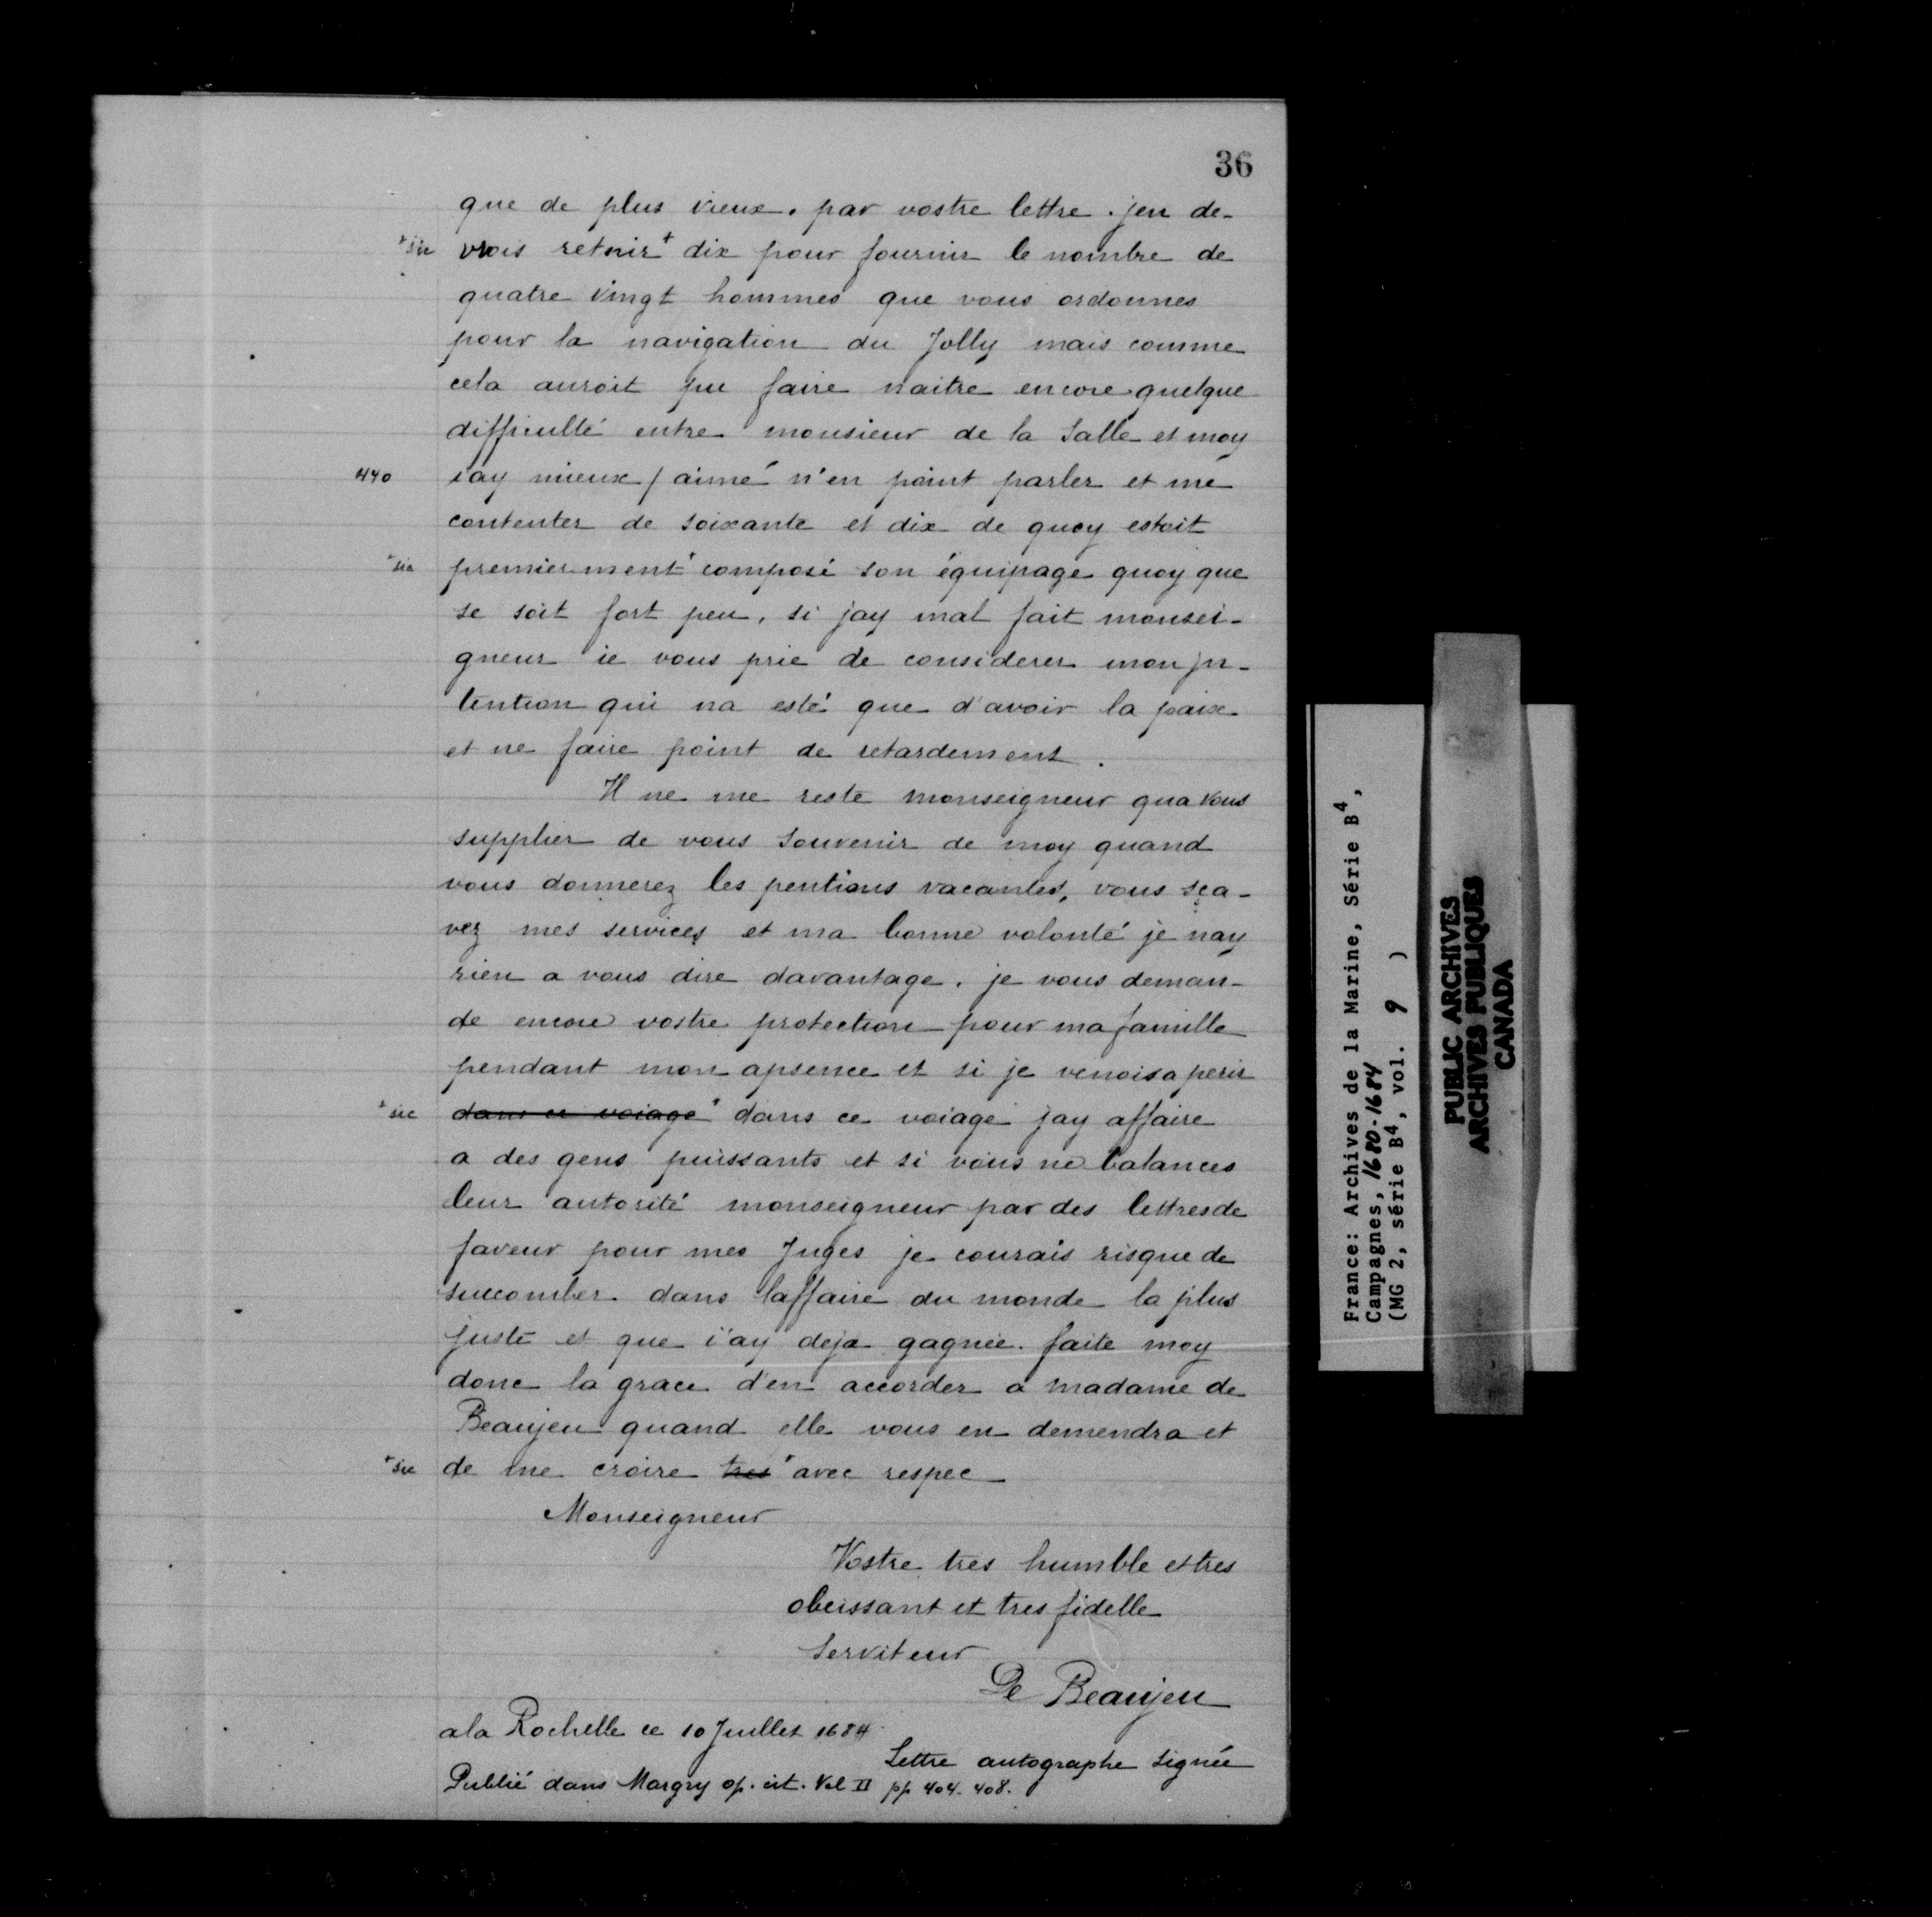 36
que de plus vieux. par vostre lettre. jen de-
+sic vrois retnir+ dix pour fournir le nombre de
quatre vingt hommes que vous ordonnes
pour la navigation du Jolly mais comme
cela auroit pu faire naitre encore quelque
difficulté entre monsieur de la Salle et moy
440 iay mieux / aimé n'en point parler et me
contenter de soixante et dix de quoy estoit
+sic premierment+ composé son équipage quoy que
se soit fort peu, si jay mal fait monsei-
gneur ie vous prie de considerer mon jn-
tention qui na esté que d'avoir la paix
et ne faire point de retardement.
Il ne me reste monseigneur qua vous
supplier de vous souvenir de moy quand
vous donnerez les pentions vacantes, vous sça-
vez mes services et ma bonne volonté je nay
rien a vous dire davantage. je vous deman-
de encore vostre protection pour ma famille
pendant mon apsence et si je venois a perir
+sic dans ce voiage+ dans ce voiage jay affaire
a des gens puissants et si vous ne balances
leur autorité monseigneur par des lettres de
faveur pour mes Juges je courais risque de
succomber dans laffaire du monde la plus
juste et que i'ay deja gagnée. faite moy
donc la grace d'en accorder a madame de
Beaujeu quand elle vous en demendra et
+sic de me croire tres+ avec respec
Monseigneur
Vostre tres humble et tres
obeissant et tres fidelle
Serviteur
De Beaujeu
a la Rochelle ce 10 Juillet 1684.
Lettre autographe signée
Publié dans Margry op. cit. Vol II pp 404. 408.
France: Archives de la Marine, Série B4,
Campagnes, 1680-1684
(MG 2, série B4, vol. 9 )
PUBLIC ARCHIVES
ARCHIVES PUBLIQUES
CANADA